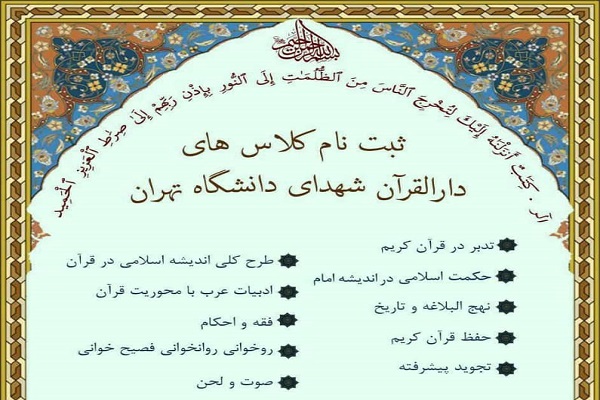 بسم الله الرحمن الرحیم
الٓر ۚ كِتَٰبٌ أَنزَلْنَٰهُ إِلَيْكَ لِتُخْرِجَ ٱلنَّاسَ مِنَ ٱلظُّلُمَٰتِ إِلَى ٱلنُّورِ بِإِذْنِ رَبِّهِمْ إِلَىٰ صِرَٰطِ ٱلْعَزِيزِ ٱلْحَمِيدِ
ثبت نام کلاس های
دارالقرآن شهدای دانشگاه تهران
تدبر در قرآن کریم
حکمت اسلامی در اندیشه امام
نهج البلاغه و تاریخ
حفظ قرآن کریم
تجوید پیشرفته
طرح کلی اندیشه اسلامی در قرآن
ادبیات عرب با محوریت قرآن
فقه و احکام
روخوانی روانخوانی فصیح خوانی
صوت و لحن